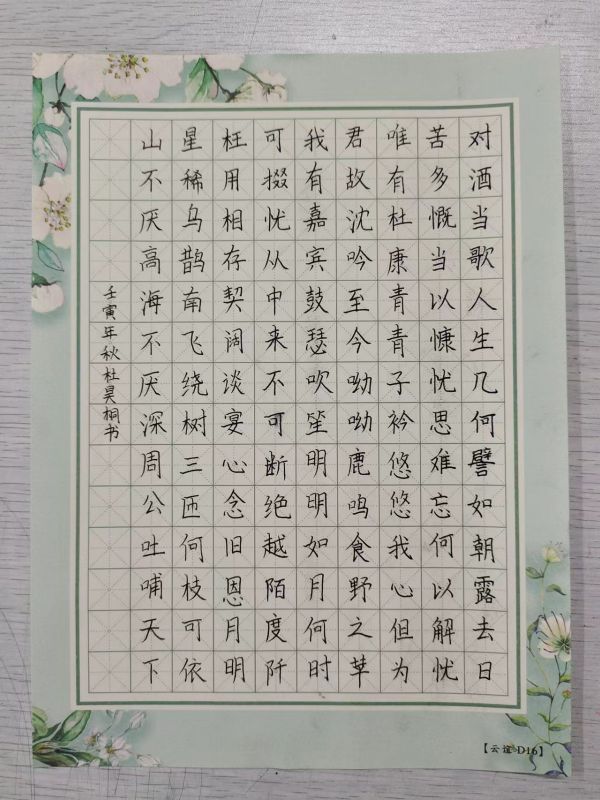 对酒当歌人生几何譬如朝露去日
苦多慨当以慷忧思难忘何以解忧
唯有杜康青青子衿悠悠我心但为
君故沈吟至今呦呦鹿鸣食野之苹
我有嘉宾鼓瑟吹笙明明如月何时
可掇忧从中来不可断绝越陌度阡
枉用相存契阔谈宴心念旧恩月明
星稀乌鹊南飞绕树三匝何枝可依
山不厌高海不厌深周公吐哺天下
壬寅年秋杜昊桐书
D16】